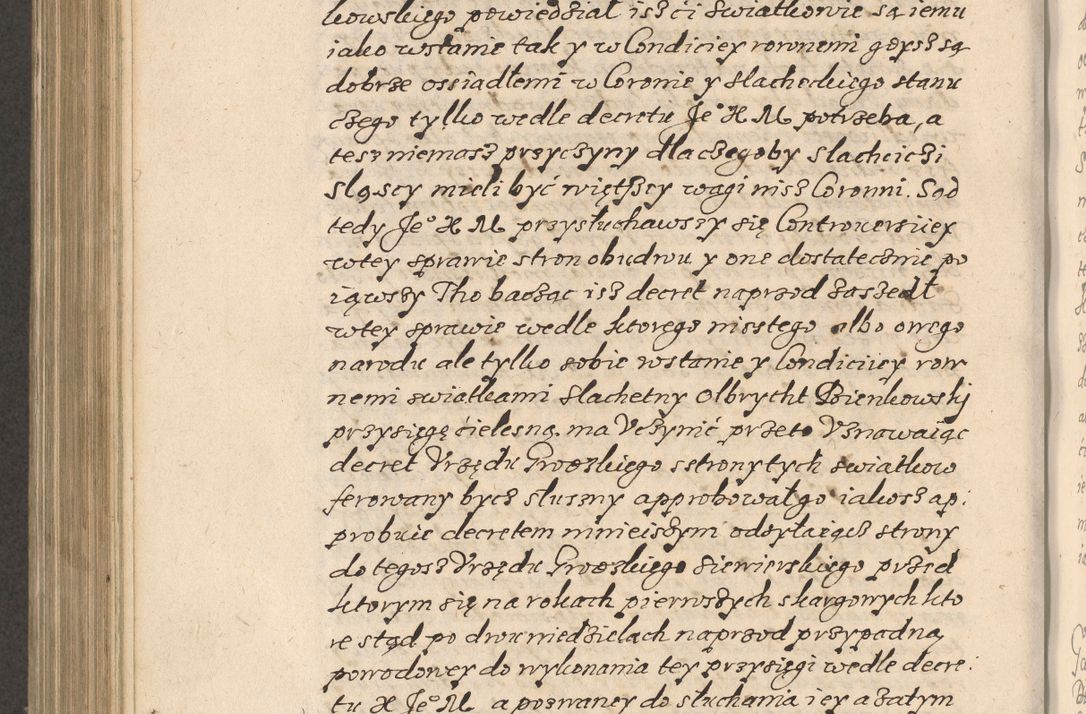 kowskiego powiedział iszci swiatkowie są iemu
iako wstanie tak y w Condiciey rownemi gdysz są
dobrze ossiadłemi w Coronie y slacheckiego stanu
czego tylko wedle decretu Je° X M potrzeba, a
tesz niemasz przyczyny dlaczegoby slachcichi
sląscy mieli być więtszey wagi nisz Coronni. Sąd
tedy Je° X M przysłuchawszy się Controuersiiey
wtey sprawie stron obudwu y one dostatecznie po
iąwszy Tho bacząc isz decret naprzod zaszedł
wtey sprawie wedle ktorego nisstego albo owego
narodu ale tylko sobie wstanie y Condiciiey row
nemi swiatkami slachetny Olbrycht Bienkowskj
przysięgę cielesną ma Vczynić przeto Vznawaiąc
decret Vrzędu Grodzkiego sstrony tych swiatkow
ferowany bycz słuszny approbował go iakosz ap:
probuie decretem ninieiszym odsyłaiącz strony
do tegosz Vrzędu Grodzkiego Siewierskiego przed
ktorym się na rokach pierwszych skargowych kto
re stąd po dwu niedzielach naprzod przypadną
powodowey do wykonania tey przysięgi wedle decre:
tu X Je° M a pozwaney do słuchania iey a zatym